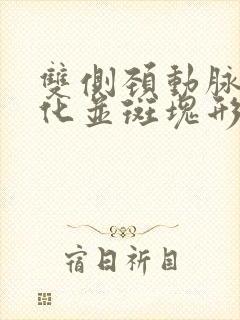 雙側頚動脉
化並斑塊形
宿日祈目